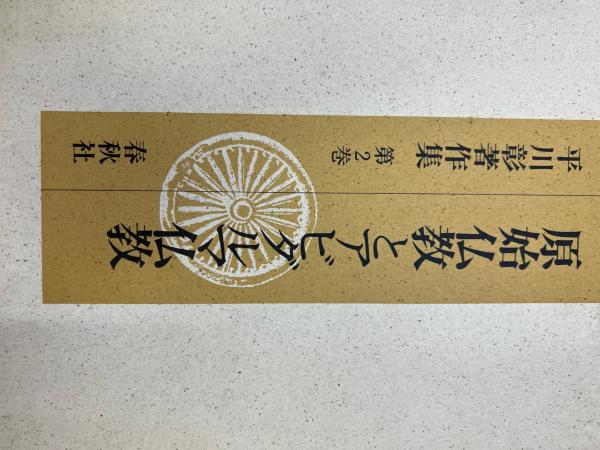 平川彰著作集 第2巻
原始仏教とアビダルマ仏教
春秋社